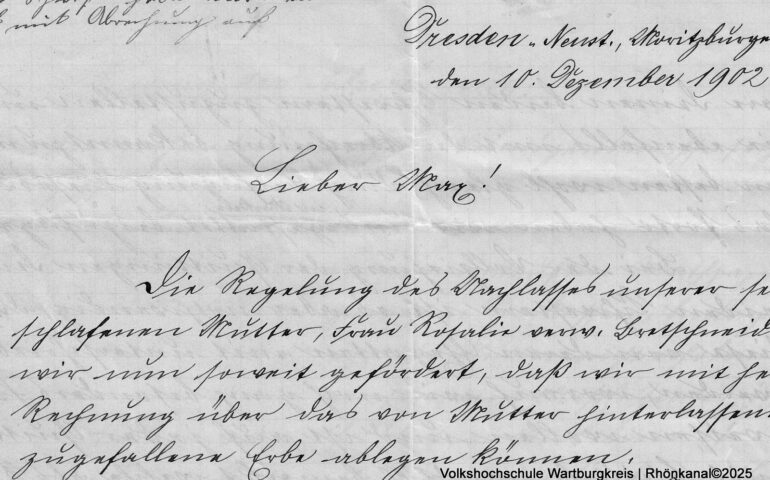 mit Abrechnung auf
Dresden-Neust., Moritzburge
den 10. Dezember 1902
Lieber Max!
Die Regelung des Nachlasses unserer
schlafenen Mutter, Frau Rosalie verw. Bretschneid
wir nun soweit gefördert, daß wir mit he
Rechnung über das von Mutter hinterlassen
zugefallene Erbe ablegen können.
Volkshochschule Wartburgkreis | Rhönkanal©2025